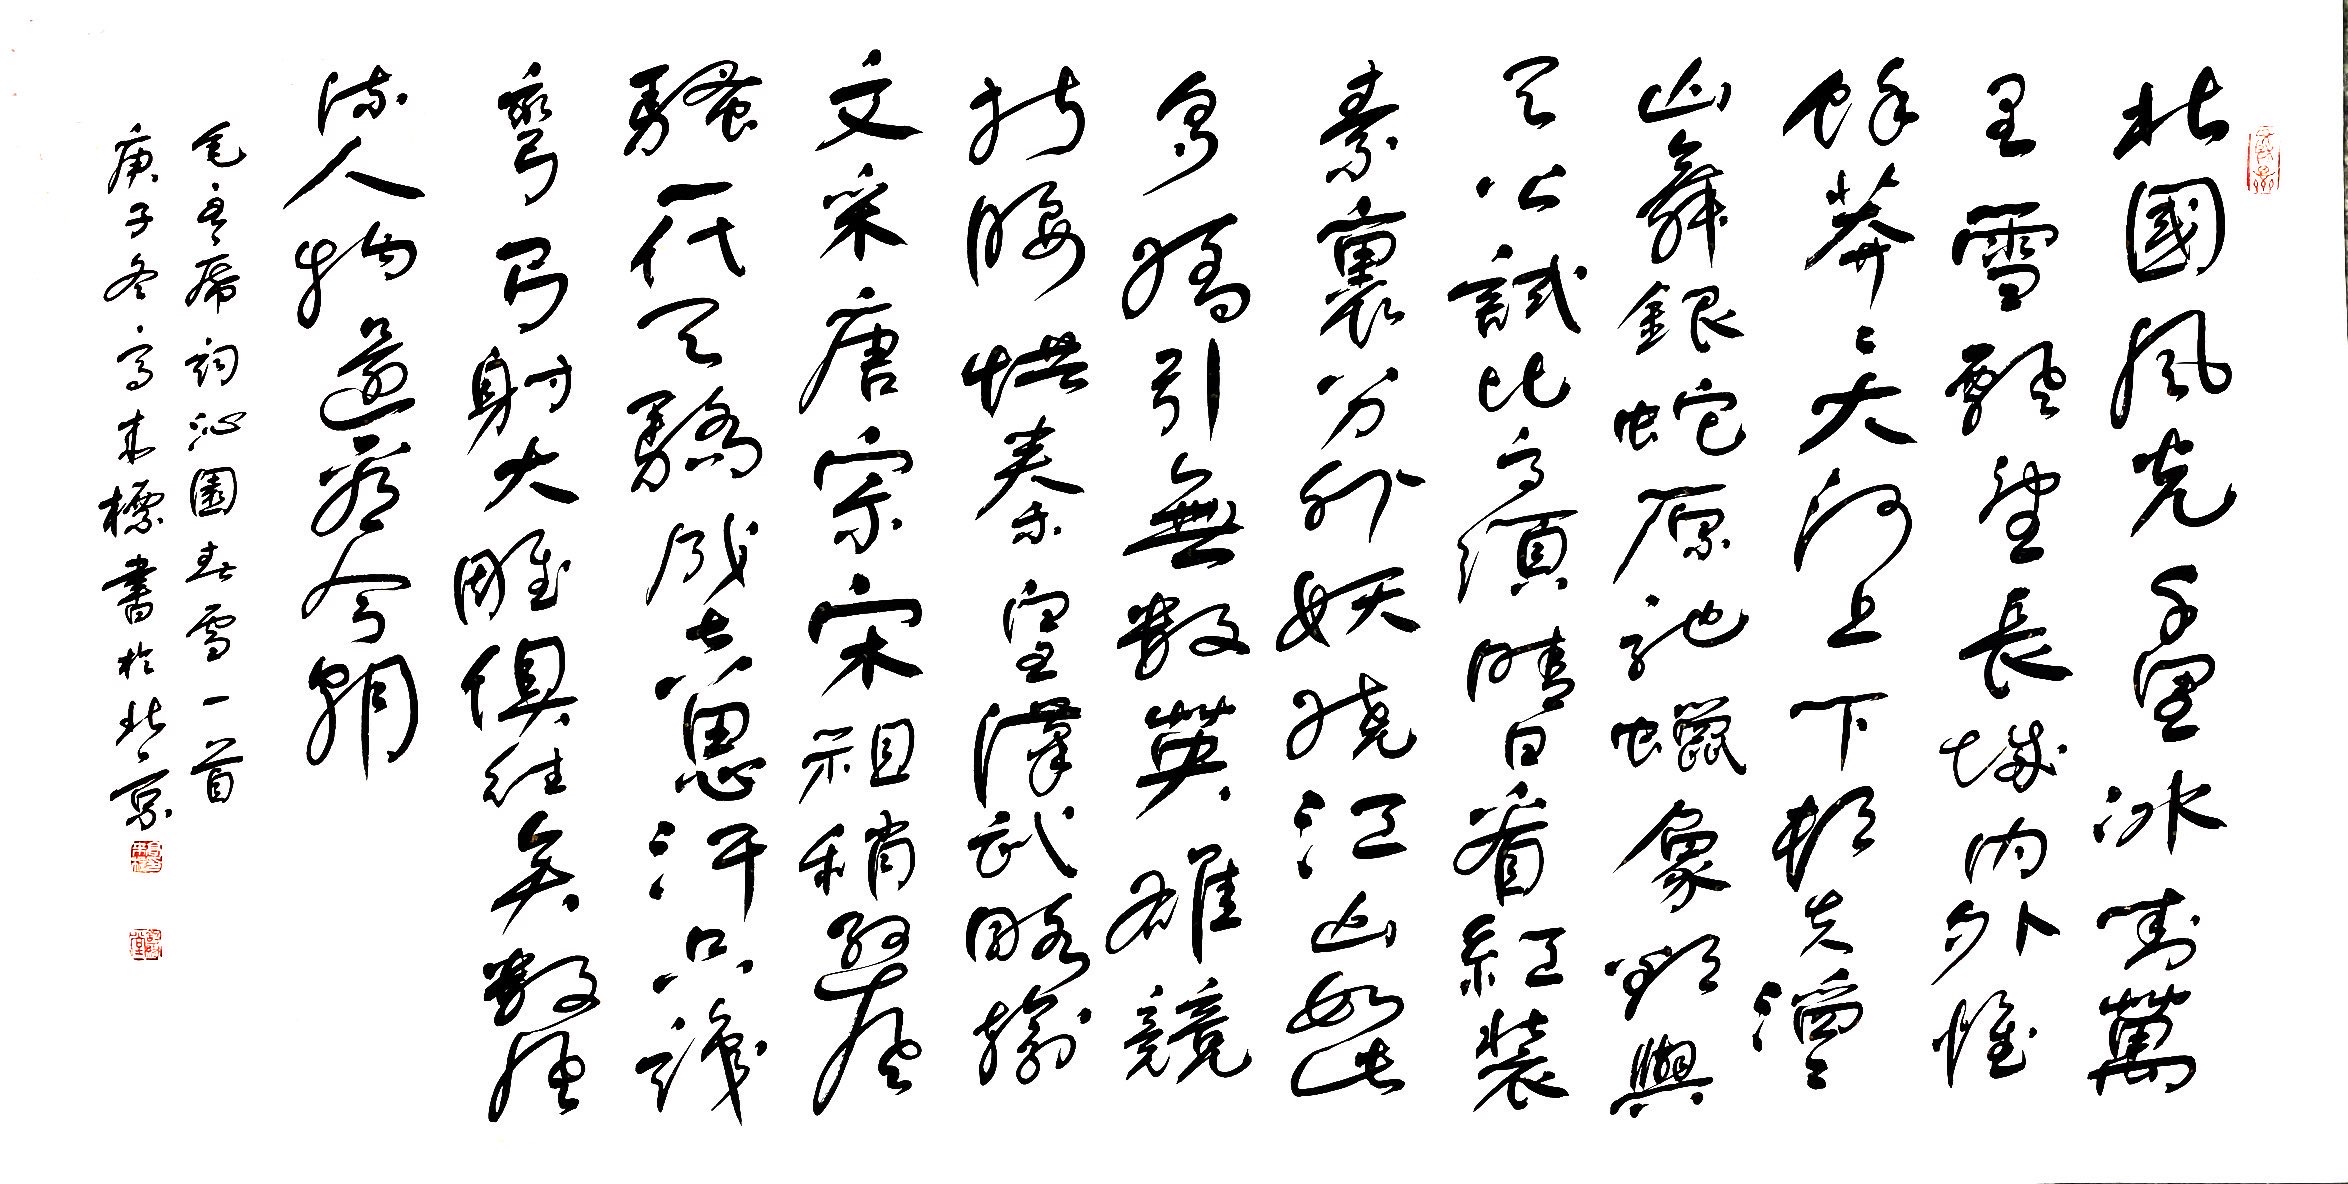 北國風光千里冰封萬
里雪飄望長城內外惟
餘莽〻大河上下頓失滔〻
山舞銀蛇原馳蠟象欲與
天公試比高須晴日看紅裝
素裹分外妖嬈江山如此
多嬌引無數英雄競
折腰惜秦皇漢武略輸
文采唐宗宋祖稍遜風
騷一代天驕成吉思汗只識
彎弓射大雕俱往矣數風
流人物還看今朝
毛主席詞沁園春雪一首
庚子冬高來標書於北京